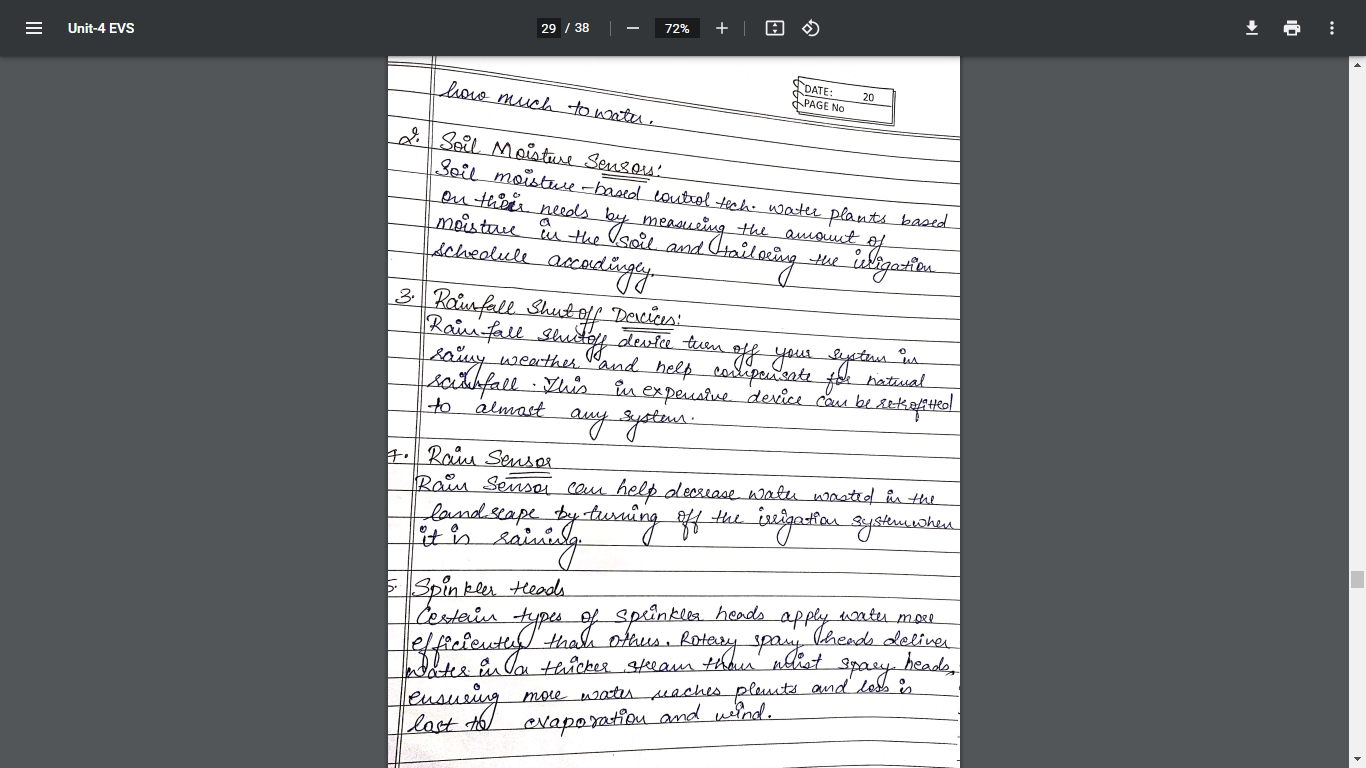 Unit-4 EVS
29 / 38
72%
DATE: 20
PAGE No
how much to water.
2. Soil Moisture Sensors:
Soil moisture-based control tech. water plants based
on their needs by measuring the amount of
moisture in the soil and tailoring the irrigation
schedule accordingly.
3. Rainfall Shut off Devices:
Rain fall shutoff device turn off your system in
rainy weather and help compensate for natural
rainfall. This in expensive device can be retrofitted
to almost any system.
4. Rain Sensor
Rain Sensor can help decrease water wasted in the
landscape by turning off the irrigation system when
it is raining.
5. Spinkler Heads
Certain types of sprinkler heads apply water more
efficiently than others. Rotary spary heads deliver
water in a thicker stream than mist spary heads,
ensuring more water reaches plants and less is
lost to evaporation and wind.